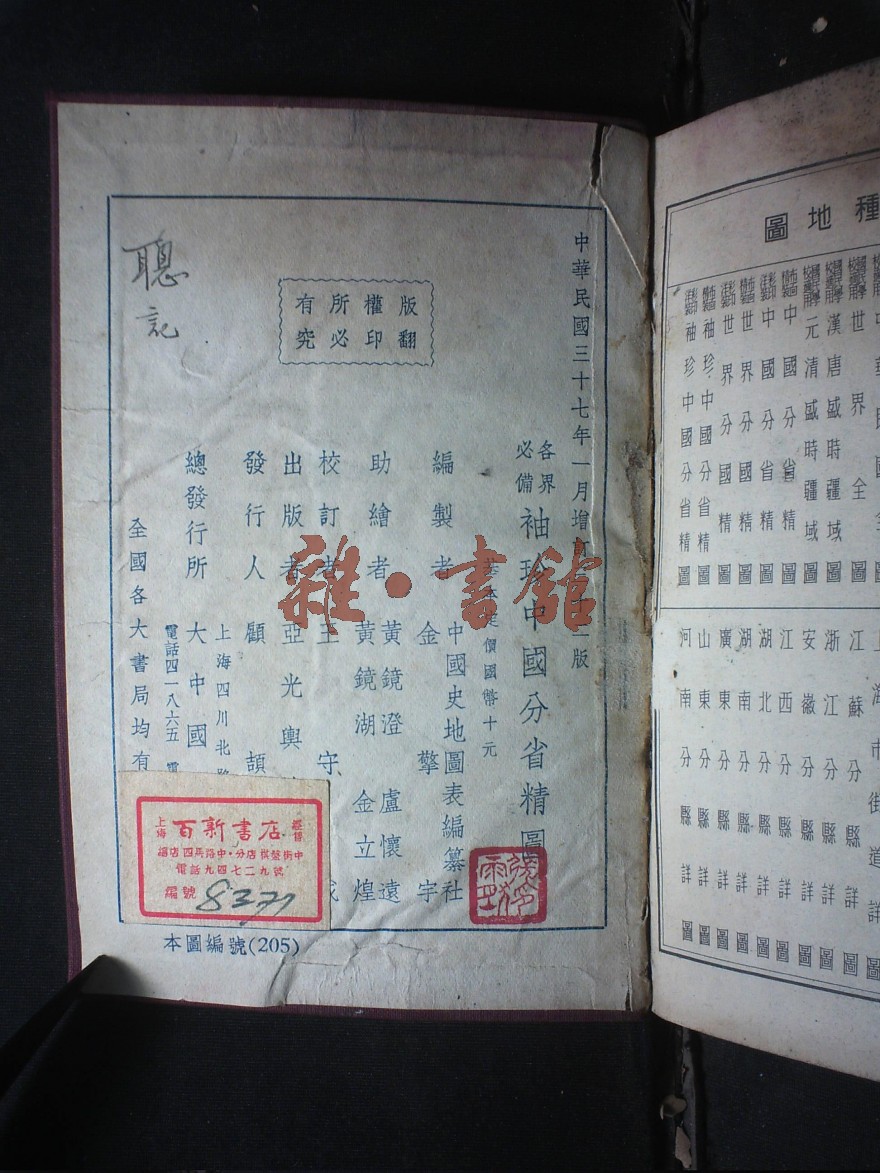 中華民國三十七年一月增
版
各界必備 袖珍中國分省精圖
價國幣十元
編製者 中國史地圖表編纂社
金擎宇
助繪者 黃鏡澄 盧懷遠
黃鏡湖 金立煌
校訂者 王守成
出版者 亞光輿
發行人 顧頡
總發行所 大中國
上海四川北路
電話四一八六五 電
全國各大書局均有
版權所有
翻印必究
聰記
雜·書館
上海 百新書店 經售
總店四馬路中·分店棋盤街中
電話九四七二九號
編號 8371
本圖編號(205)
種地圖
世界全
漢唐盛時疆域圖
元清盛時疆域圖
中國分省精圖
中國分省精圖
世界分國精圖
世界分國精圖
袖珍中國分省精圖
袖珍中國分省精圖
上海市街道詳圖
江蘇分縣詳圖
浙江分縣詳圖
安徽分縣詳圖
江西分縣詳圖
湖北分縣詳圖
湖南分縣詳圖
廣東分縣詳圖
山東分縣詳圖
河南分縣詳圖